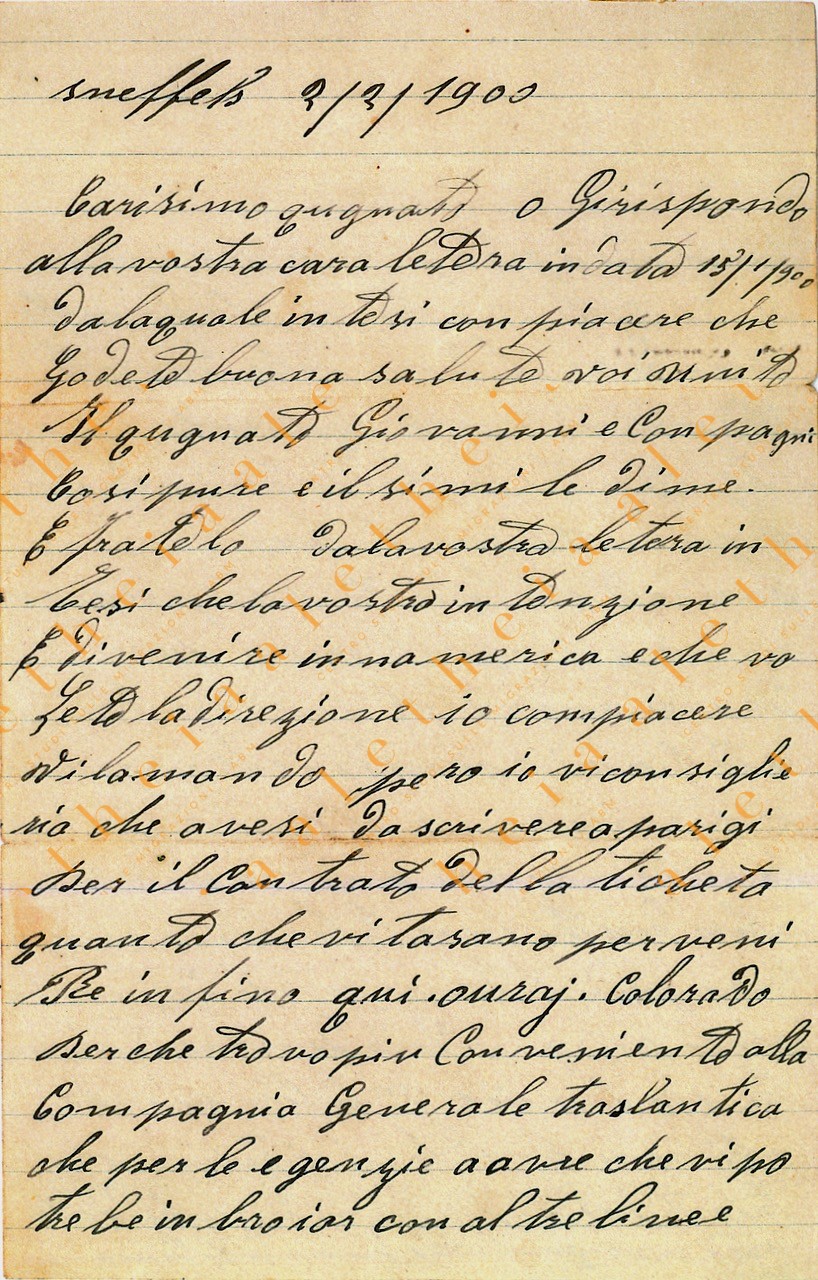 sneffels 2/2/1900
Carisimo qugnato o Girispondo
alla vostra cara letera in data 15/1/900
dalaquale intesi con piacere che
Godete buona salute voi unito
Il qugnato Giovanni e Compagni
Cosi pure e il simile di me.
E fratelo dalavostra letera in
Tesi che lavostra intenzione
E di venire innamerica e che vo
Lete la direzione io compiacere
vi la mando pero io vi consiglie
ria che avesi da scrivere a parigi
Per il Contrato della ticheta
quanto che vi tasano per veni
Re in fino qui. ouraj. Colorado
Perche trovo piu Conveniente alla
Compagnia Generale traslantica
che per le egenzie aavre che vi po
trebe inbroiar con altre linee